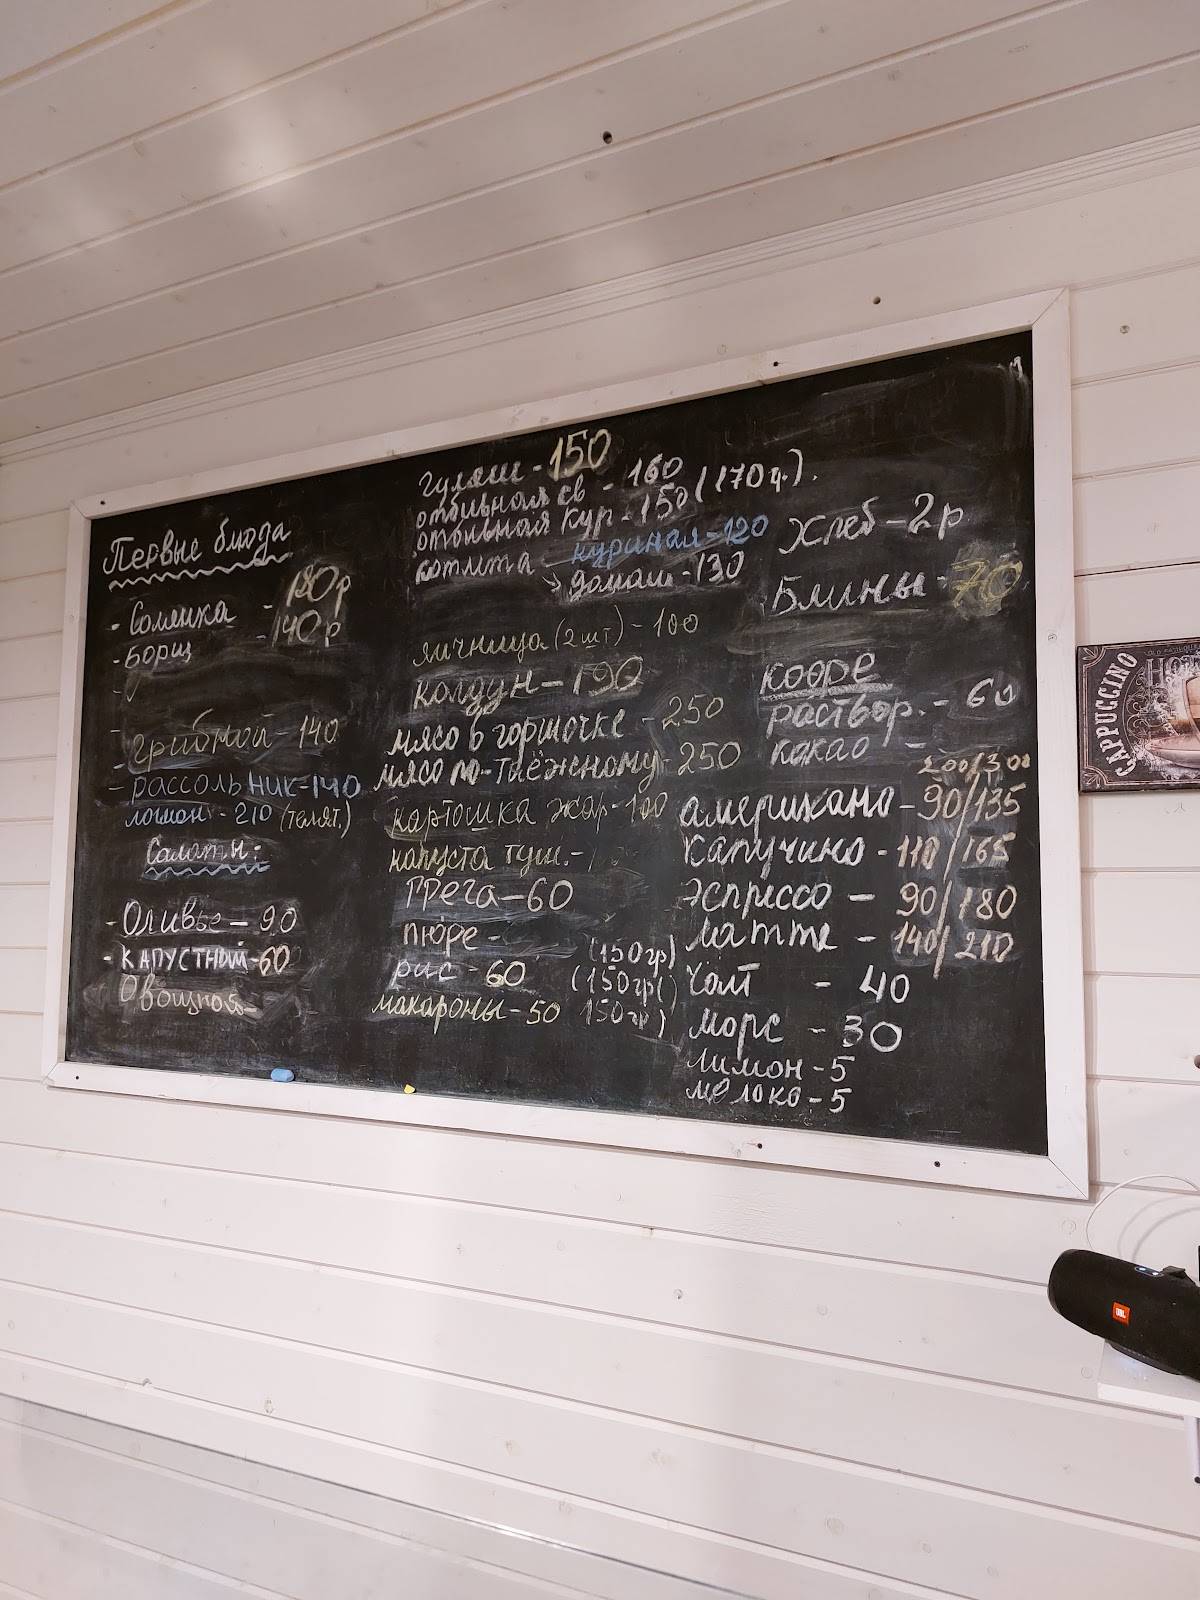 Первые блюда
- Солянка - 180р
- Борщ - 140р
- грибной - 140
- рассольник - 140
лагман - 210 (телят.)
Салаты:
- Оливье - 90
- капустный - 60
Овощной -
гуляш - 150
отбивная св - 160
отбивная кур - 150 (170г.).
котлета куриная - 120
→ домаш - 130
яичница (2 шт) - 100
колдун - 190
мясо в горшочке - 250
мясо по-таёжному - 250
картошка жар - 100
капуста туш. -
греча - 60
пюре - (150гр)
рис - 60 (150гр)
макароны - 50 150гр)
Хлеб - 2р
Блины - 70
кофе
раствор. - 60
какао -
200/300
американо - 90/135
капучино - 110/165
эспрессо - 90/180
латте - 140/210
чай - 40
морс - 30
лимон - 5
молоко - 5
CAPPUCCINO
JBL